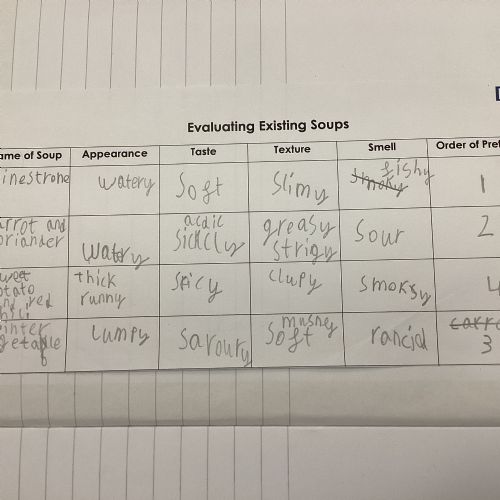 Evaluating Existing Soups
ame of Soup Appearance Taste Texture Smell Order of Pref
inestrone watery Soft Slimy smoky fishy 1
arrot and oriander watery acdic sickcly greasy strigy sour 2
weet otato nd red hili thick runny spicy clupy smoksy 4
inter getable lumpy savoury mushey soft rancid carro 3